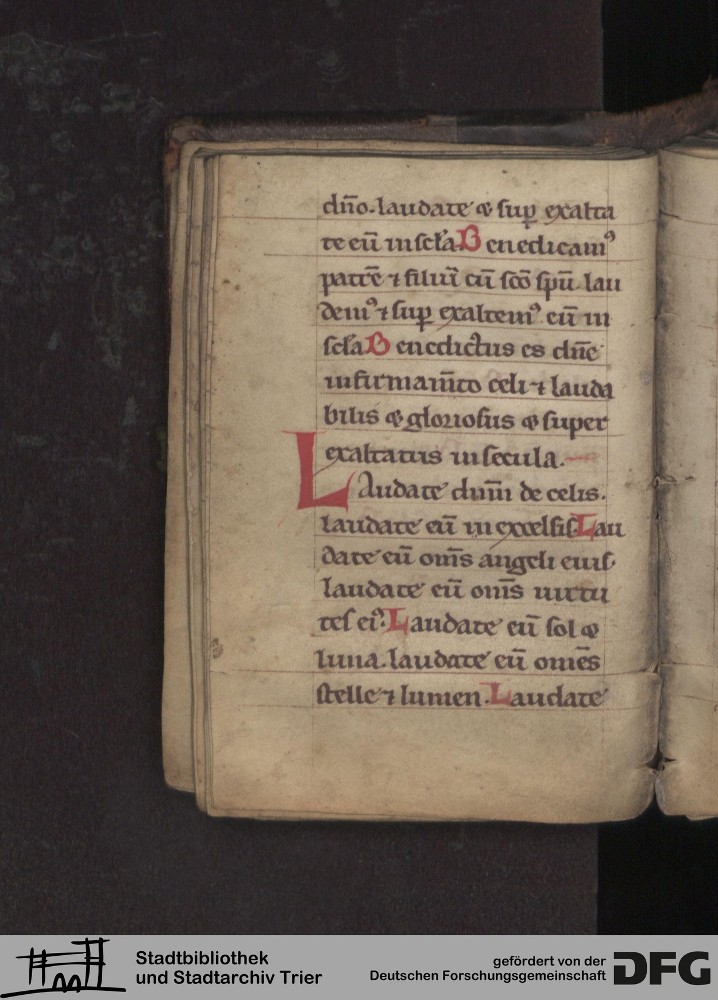 dn̄o. laudate ⁊ sup̱ exalta
te eū in scl̄a. Benedicam⁹
patrē ⁊ filiū cū sc̄o sp̄u. lau
dem⁹ ⁊ sup̱ exaltem⁹ eū in
scl̄a Benedictus es dn̄e
in firmam̄to celi ⁊ lauda
bilis ⁊ gloriosus ⁊ super
exaltatus in secula.
Laudate dn̄m de celis.
laudate eū in excelsis. Lau
date eū om̄s angeli eius.
laudate eū om̄s uirtu
tes ei⁹. Laudate eū sol ⁊
luna. laudate eū omēs
stelle ⁊ lumen. Laudate
Stadtbibliothek
und Stadtarchiv Trier
gefördert von der
Deutschen Forschungsgemeinschaft
DFG